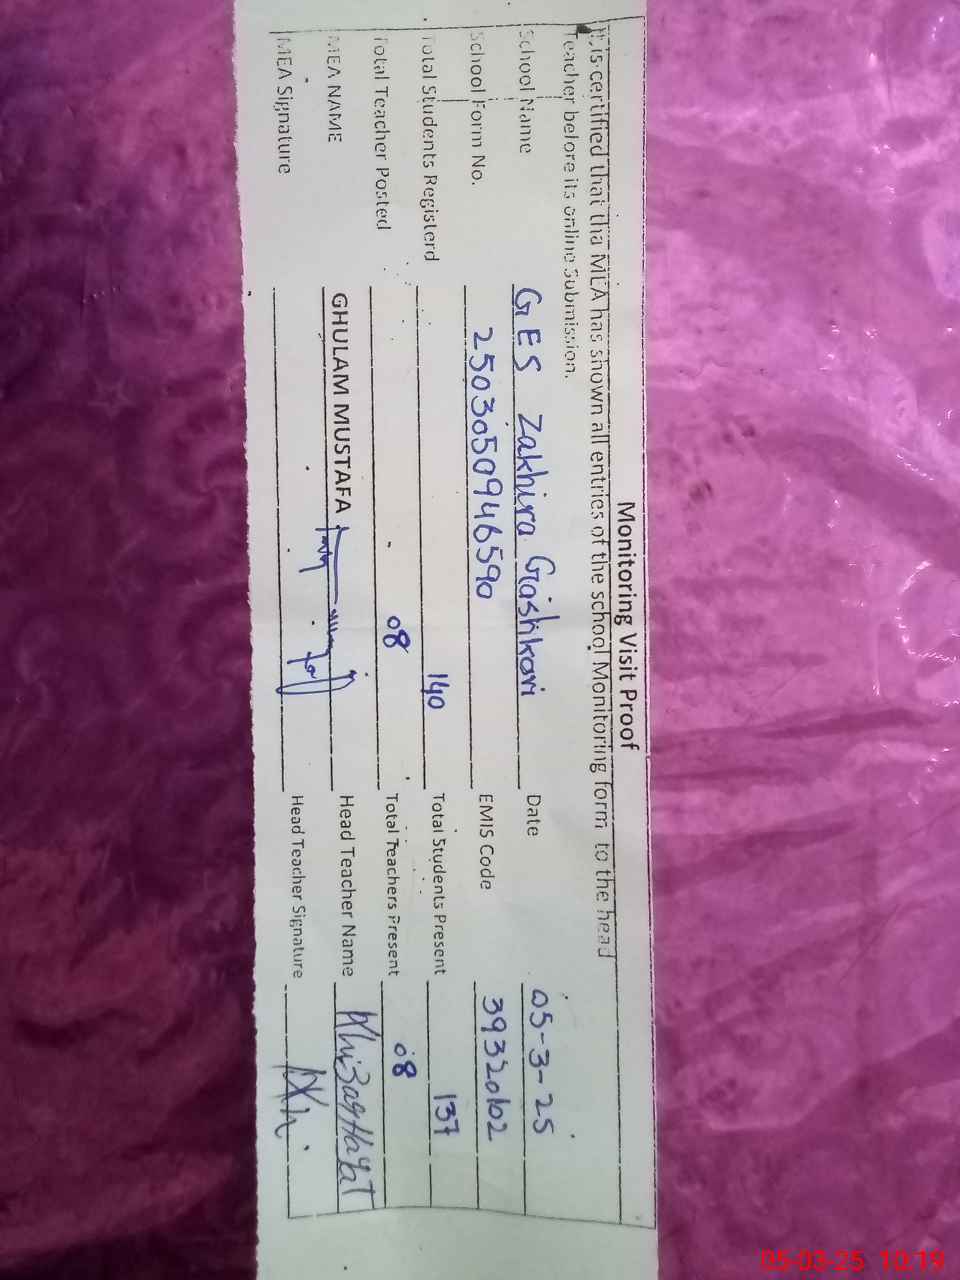 Monitoring Visit Proof
It is certified that tha MEA has shown all entries of the school Monitoring form to the head
Teacher before its online Submission.
School Name GES Zakhira Gashkori Date 05-3-25
School Form No. 2503050946590 EMIS Code 39320102
Total Students Registerd 140 Total Students Present 137
Total Teacher Posted 08 Total Teachers Present 08
MEA NAME GHULAM MUSTAFA Head Teacher Name Khizar Hayat
MEA Signature Head Teacher Signature
05-03-25 10:19